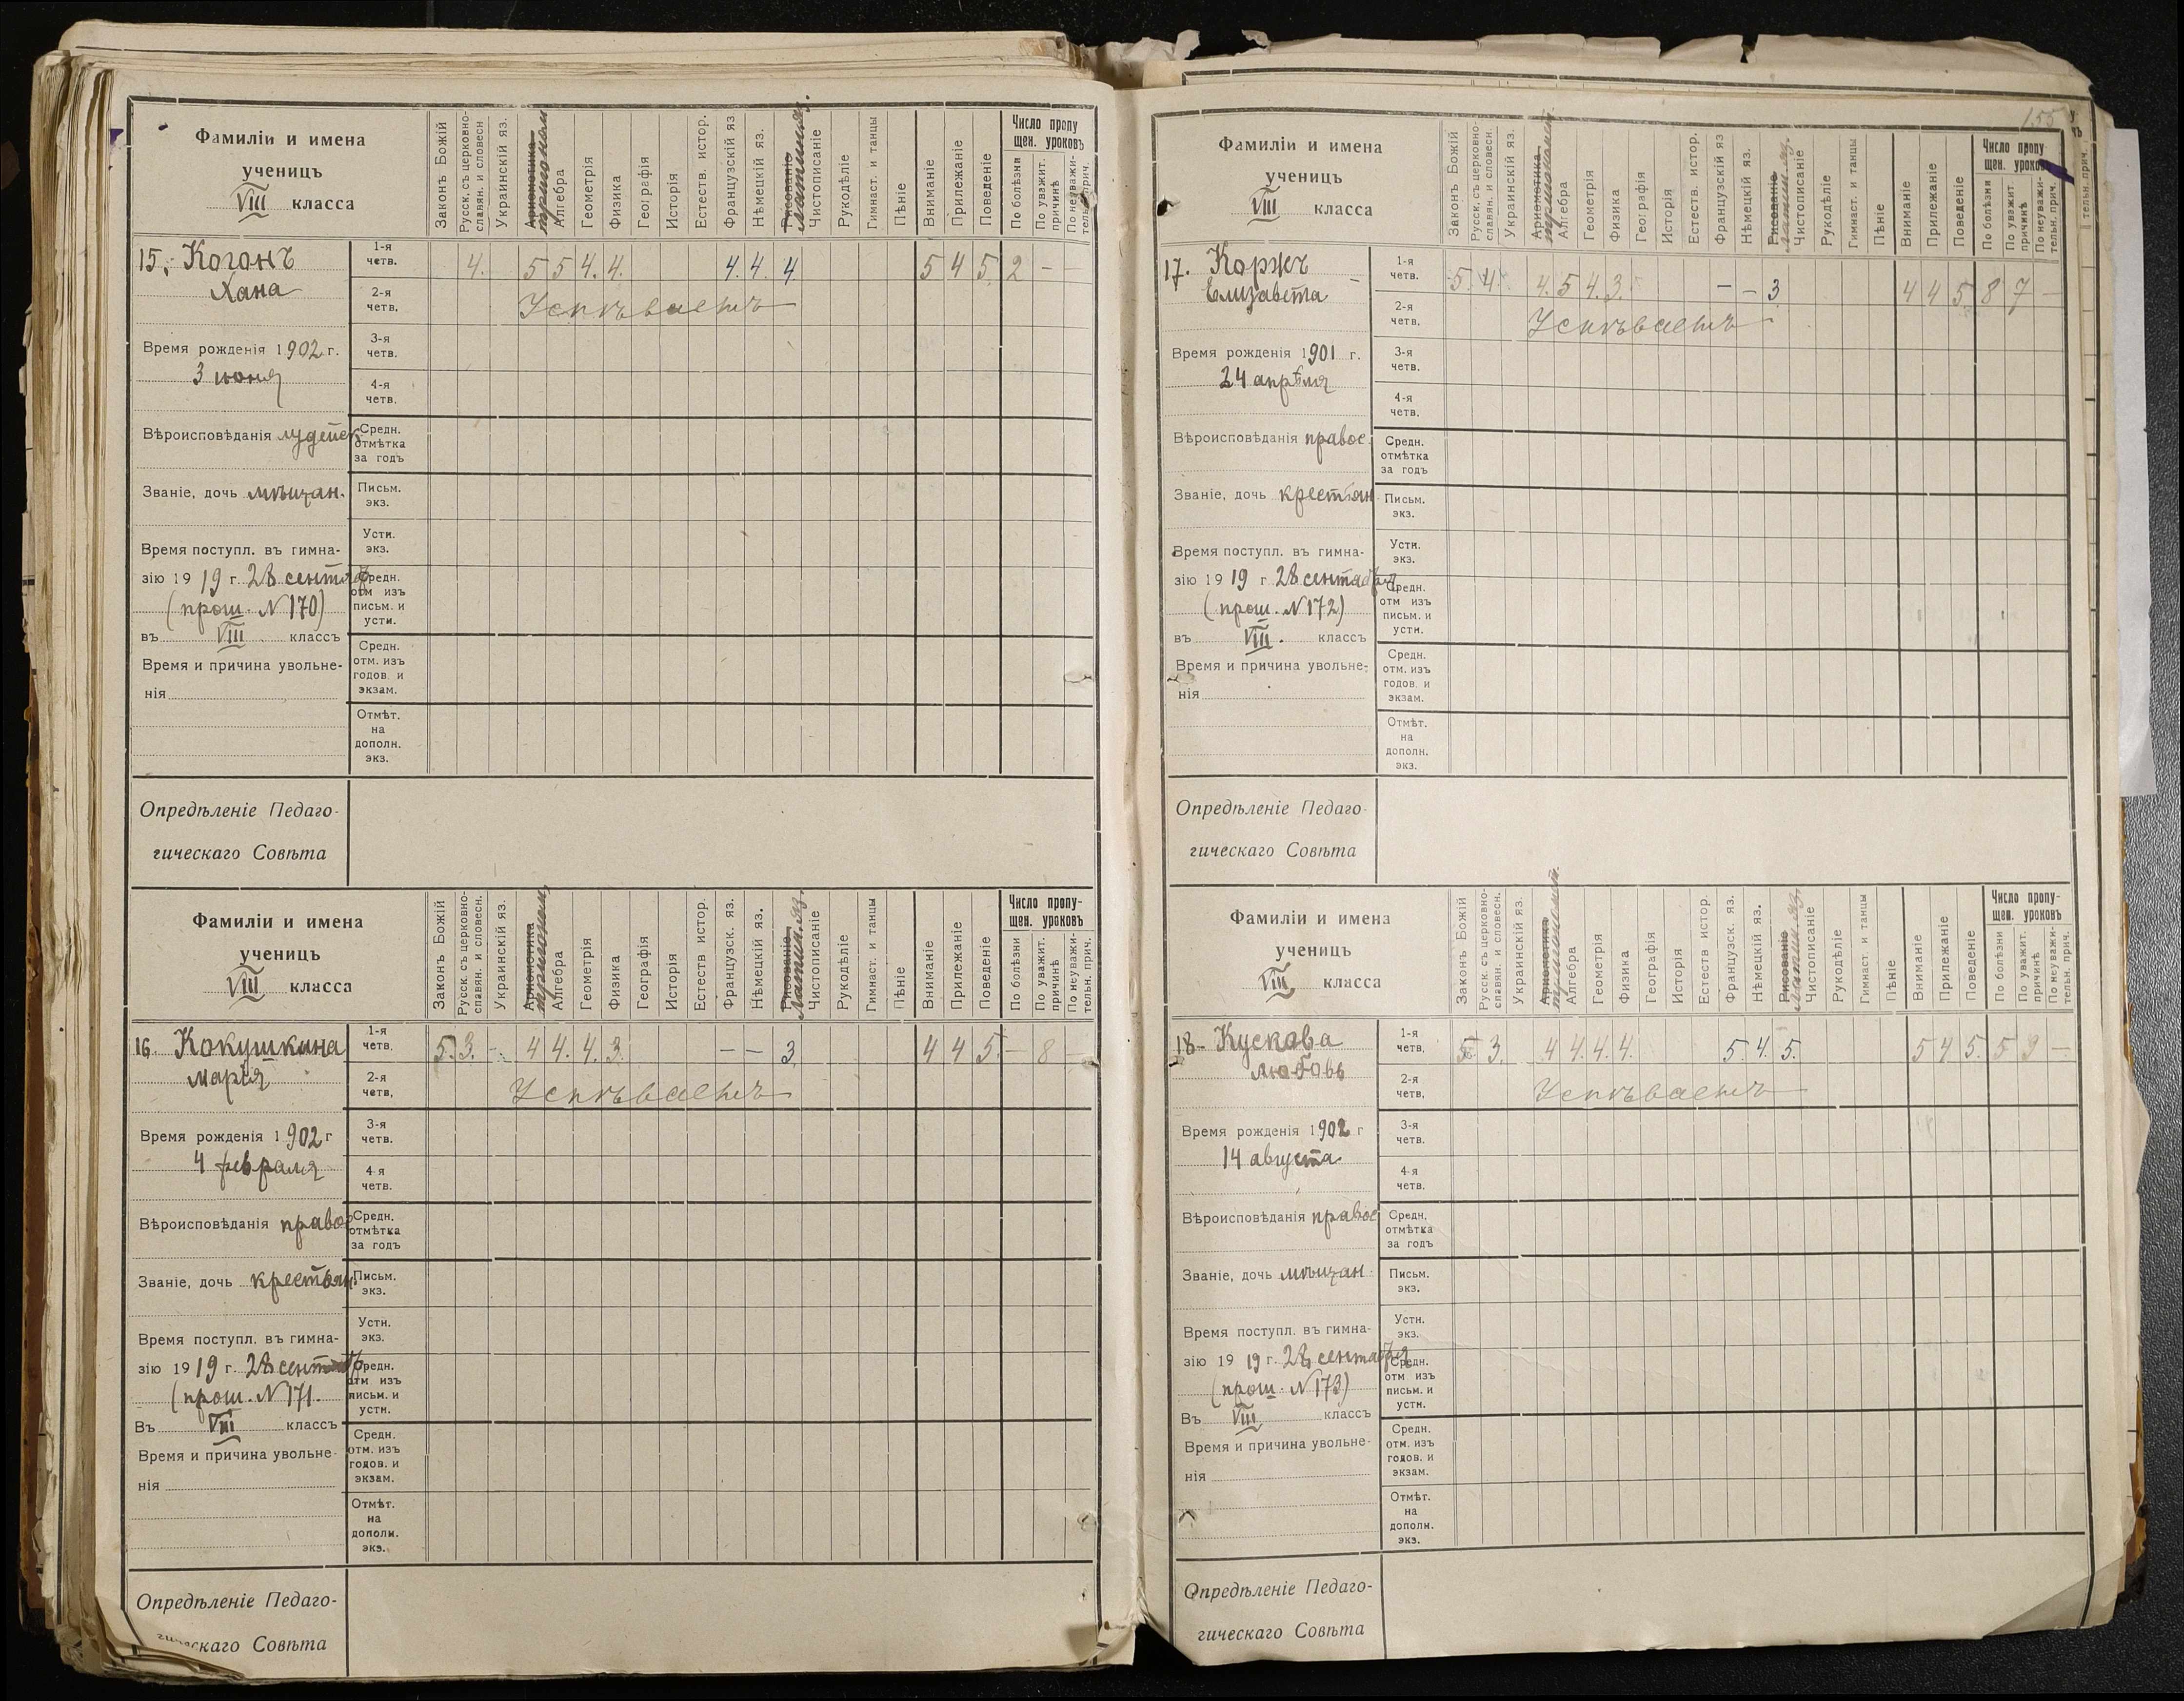 Фамиліи и имена
ученицъ
VIII класса
Законъ Божій
Русск. съ церковно-
славян. и словесн
Украинскій яз.
Ариѳметика
тригоном
Алгебра
Геометрія
Физика
Географія
Исторія
Естеств. истор.
Французскій яз
Нѣмецкій яз.
Рисованіе
Латин. яз.
Чистописаніе
Рукодѣліе
Гимнаст. и танцы
Пѣніе
Вниманіе
Прилежаніе
Поведеніе
Число пропу
щен. уроковъ
По болѣзни
По уважит.
причинѣ
По неуважи-
тельн. прич.
15. Коганъ
Хана
1-я
четв.
4. 5 5 4. 4. 4. 4. 4 5 4 5 2 – –
2-я
четв.
Успѣваетъ
Время рожденія 1902 г.
3 июня
3-я
четв.
4-я
четв.
Вѣроисповѣданія иудейск
Средн.
отмѣтка
за годъ
Званіе, дочь мѣщан.
Письм.
экз.
Устн.
экз.
Время поступл. въ гимна-
зію 1919 г. 28 сентяб
(прош. N 170)
въ VIII классъ
Средн.
отм изъ
письм. и
устн.
Время и причина увольне-
нія
Средн.
отм. изъ
годов. и
экзам.
Отмѣт.
на
дополн.
экз.
Опредѣленіе Педаго-
гическаго Совѣта
Фамиліи и имена
ученицъ
VIII класса
Законъ Божій
Русск. съ церковно-
славян. и словесн.
Украинскій яз.
Ариѳметика
тригоном.
Алгебра
Геометрія
Физика
Географія
Исторія
Естеств истор.
Французск. яз.
Нѣмецкій яз.
Рисованіе
Латин. яз.
Чистописаніе
Рукодѣліе
Гимнаст. и танцы
Пѣніе
Вниманіе
Прилежаніе
Поведеніе
Число пропу-
щен. уроковъ
По болѣзни
По уважит.
причинѣ
По неуважи-
тельн. прич.
16. Кокушкина
Марія
1-я
четв.
5. 3. – 4 4. 4. 3. – – 3. 4 4 5. – 8 –
2-я
четв.
Успѣваетъ
Время рожденія 1902 г
4 февраля
3-я
четв.
4 я
четв.
Вѣроисповѣданія правос
Средн.
отмѣтка
за годъ
Званіе, дочь крестьян.
Письм.
экз.
Устн.
экз.
Время поступл. въ гимна-
зію 1919 г. 28 сентяб
(прош. N 171.
Въ VIII классъ
Средн.
отм изъ
письм. и
устн.
Время и причина увольне-
нія
Средн.
отм. изъ
годов. и
экзам.
Отмѣт.
на
дополн.
экз.
Опредѣленіе Педаго-
гическаго Совѣта
155
Фамиліи и имена
ученицъ
VIII класса
Законъ Божій
Русск. съ церковно-
славян. и словесн.
Украинскій яз.
Ариѳметика
тригономет.
Алгебра
Геометрія
Физика
Географія
Исторія
Естеств. истор.
Французскій яз
Нѣмецкій яз.
Рисованіе
Латин. яз.
Чистописаніе
Рукодѣліе
Гимнаст. и танцы
Пѣніе
Вниманіе
Прилежаніе
Поведеніе
Число пропу
щен. уроковъ
По болѣзни
По уважит.
причинѣ
По неуважи-
тельн. прич.
тельн. прич.
17. Коржъ
Елизавета
1-я
четв.
5. 4. 4. 5 4. 3. – – 3. 4 4 5 8 7 –
2-я
четв.
Успѣваетъ
Время рожденія 1901 г.
24 апрѣля
3-я
четв.
4-я
четв.
Вѣроисповѣданія правос.
Средн.
отмѣтка
за годъ
Званіе, дочь крестьян
Письм.
экз.
Устн.
экз.
Время поступл. въ гимна-
зію 1919 г 28 сентября
(прош. N 172)
въ VIII. классъ
Средн.
отм изъ
письм. и
устн.
Время и причина увольне-
нія
Средн.
отм. изъ
годов. и
экзам.
Отмѣт.
на
дополн.
экз.
Опредѣленіе Педаго-
гическаго Совѣта
Фамиліи и имена
ученицъ
VIII класса
Законъ Божій
Русск. съ церковно-
славян. и словесн.
Украинскій яз.
Ариѳметика
тригономет.
Алгебра
Геометрія
Физика
Географія
Исторія
Естеств истор.
Француз. яз.
Нѣмецкій яз.
Рисованіе
Латин. яз.
Чистописаніе
Рукодѣліе
Гимнаст. и танцы
Пѣніе
Вниманіе
Прилежаніе
Поведеніе
Число пропу-
щен. уроковъ
По болѣзни
По уважит.
причинѣ
По неуважи-
тельн. прич.
18– Кускова
Любовь
1-я
четв.
5. 3. 4 4. 4. 4. 5. 4. 5. 5 4 5. 5 9 –
2-я
четв.
Успѣваетъ
Время рожденія 1902 г
14 августа
3-я
четв.
4-я
четв.
Вѣроисповѣданія правос
Средн.
отмѣтка
за годъ
Званіе, дочь мѣщан
Письм.
экз.
Устн.
экз.
Время поступл. въ гимна-
зію 1919 г. 28 сентября
(прош. N 173)
Въ VIII классъ
Средн.
отм изъ
письм. и
устн.
Время и причина увольне-
нія
Средн.
отм. изъ
годов. и
экзам.
Отмѣт.
на
дополн.
экз.
Опредѣленіе Педаго-
гическаго Совѣта